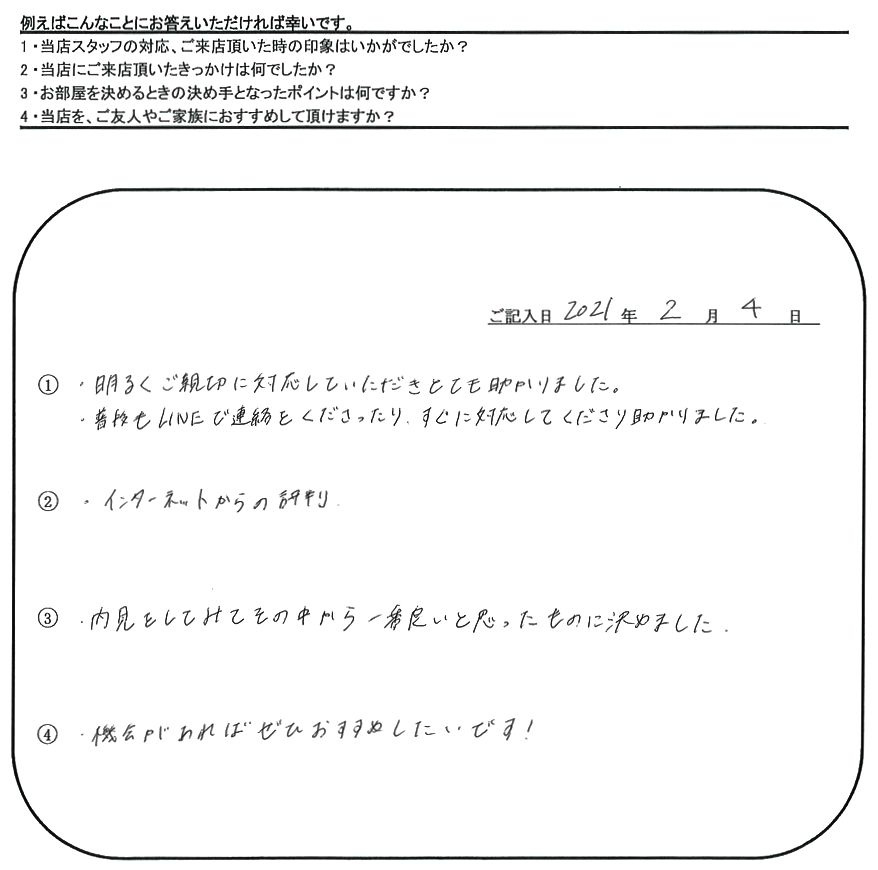 例えばこんなことにお答えいただければ幸いです。
1・当店スタッフの対応、ご来店頂いた時の印象はいかがでしたか?
2・当店にご来店頂いたきっかけは何でしたか?
3・お部屋を決めるときの決め手となったポイントは何ですか?
4・当店を、ご友人やご家族におすすめして頂けますか?
ご記入日 2021 年 2 月 4 日
① ・明るくご親切に対応していただきとても助かりました。
・普段もLINEで連絡をくださったり、すぐに対応してくださり助かりました。
② ・インターネットからの評判
③ ・内見をしてみてその中から一番良いと思ったものに決めました.
④ ・機会があればぜひおすすめしたいです!